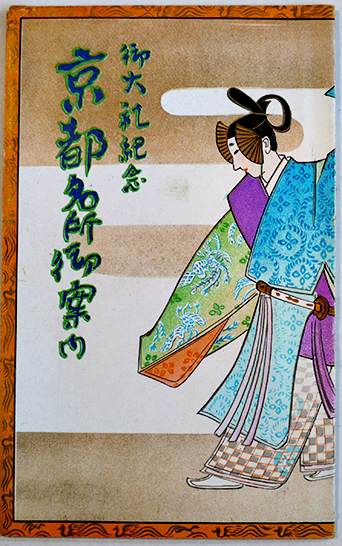 御大礼紀念
京都名所御案内